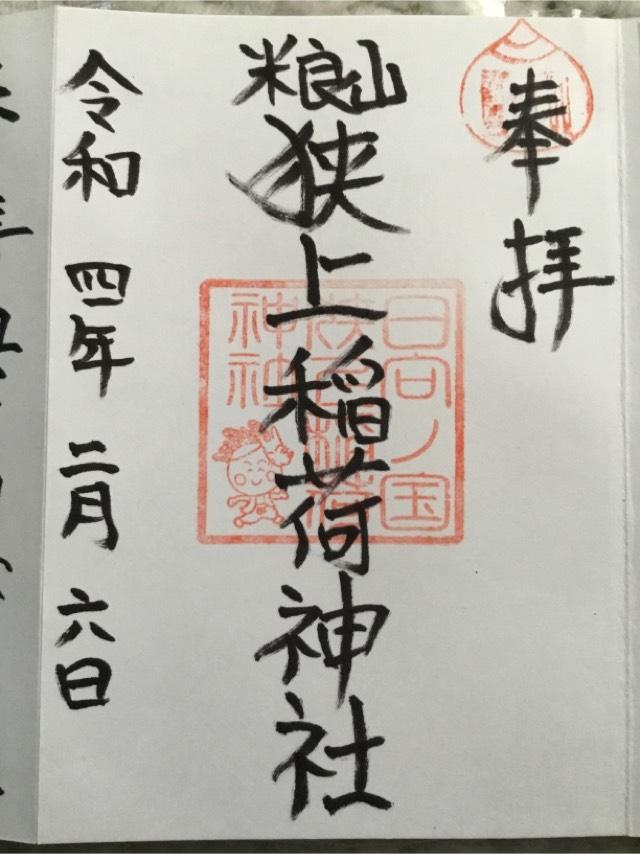 奉拝
米良山
狭上稲荷神社
日向ノ国
狭上稲荷
神社
令和四年二月六日